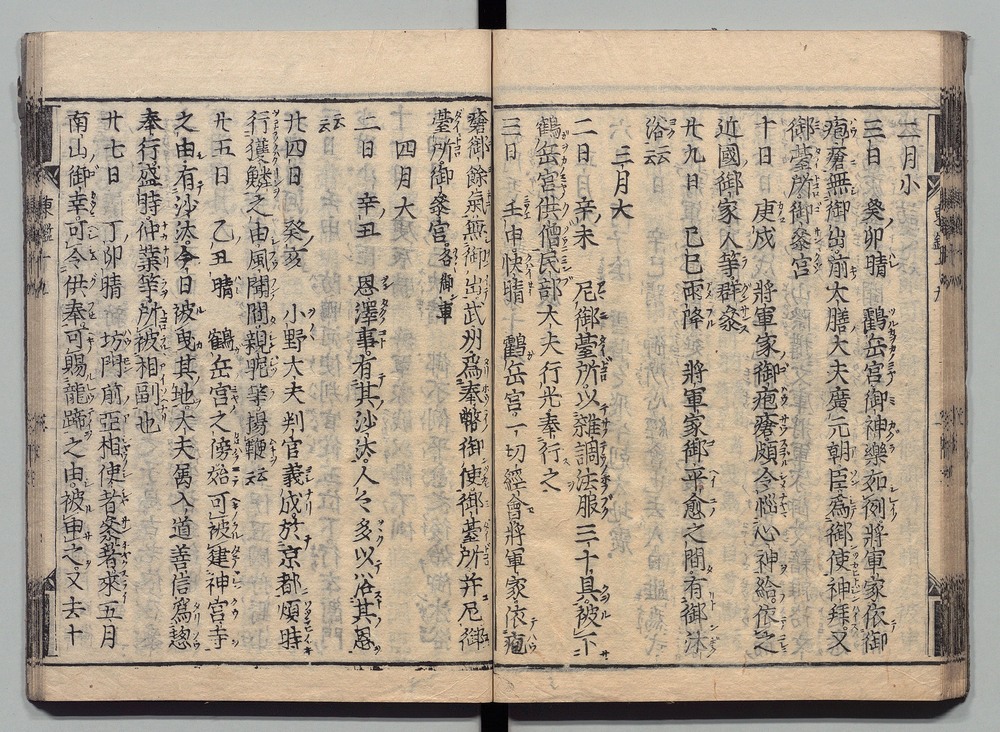 二月小
三日 癸卯晴 鶴岳宮御神樂如例將軍家依御
疱瘡無御出前大膳大夫廣元朝臣爲御使神拜又
御臺所御參宮
十日 庚戌 將軍家御疱瘡頗令惱心神給依之
近國御家人等群參
廿九日 己巳雨降 將軍家御平愈之間有御沐
浴云云
三月大
二日 辛未 尼御臺所以雜調法服三十具被下
鶴岳宮供僧民部大夫行光奉行之
三日 壬申快晴 鶴岳宮一切經會將軍家依疱
瘡御餘氣無御出武州爲奉幣御使御臺所并尼御
臺所御參宮各御車
四月大
二日 辛丑 恩澤事有其沙汰人々多以浴其恩
云云
廿四日 癸亥 小野大夫判官義成於京都頓時
行獲麟之由風聞間親昵等揚鞭云云
廿五日 乙丑晴 鶴岳宮之傍始可被建神宮寺
之由有沙汰今日被曳其地大夫属入道善信爲惣
奉行盛時仲業等所被相副也
廿七日 丁卯晴 坊門前亞相使者參著來五月
南山御幸可令供奉可賜龍蹄之由被申之又去十